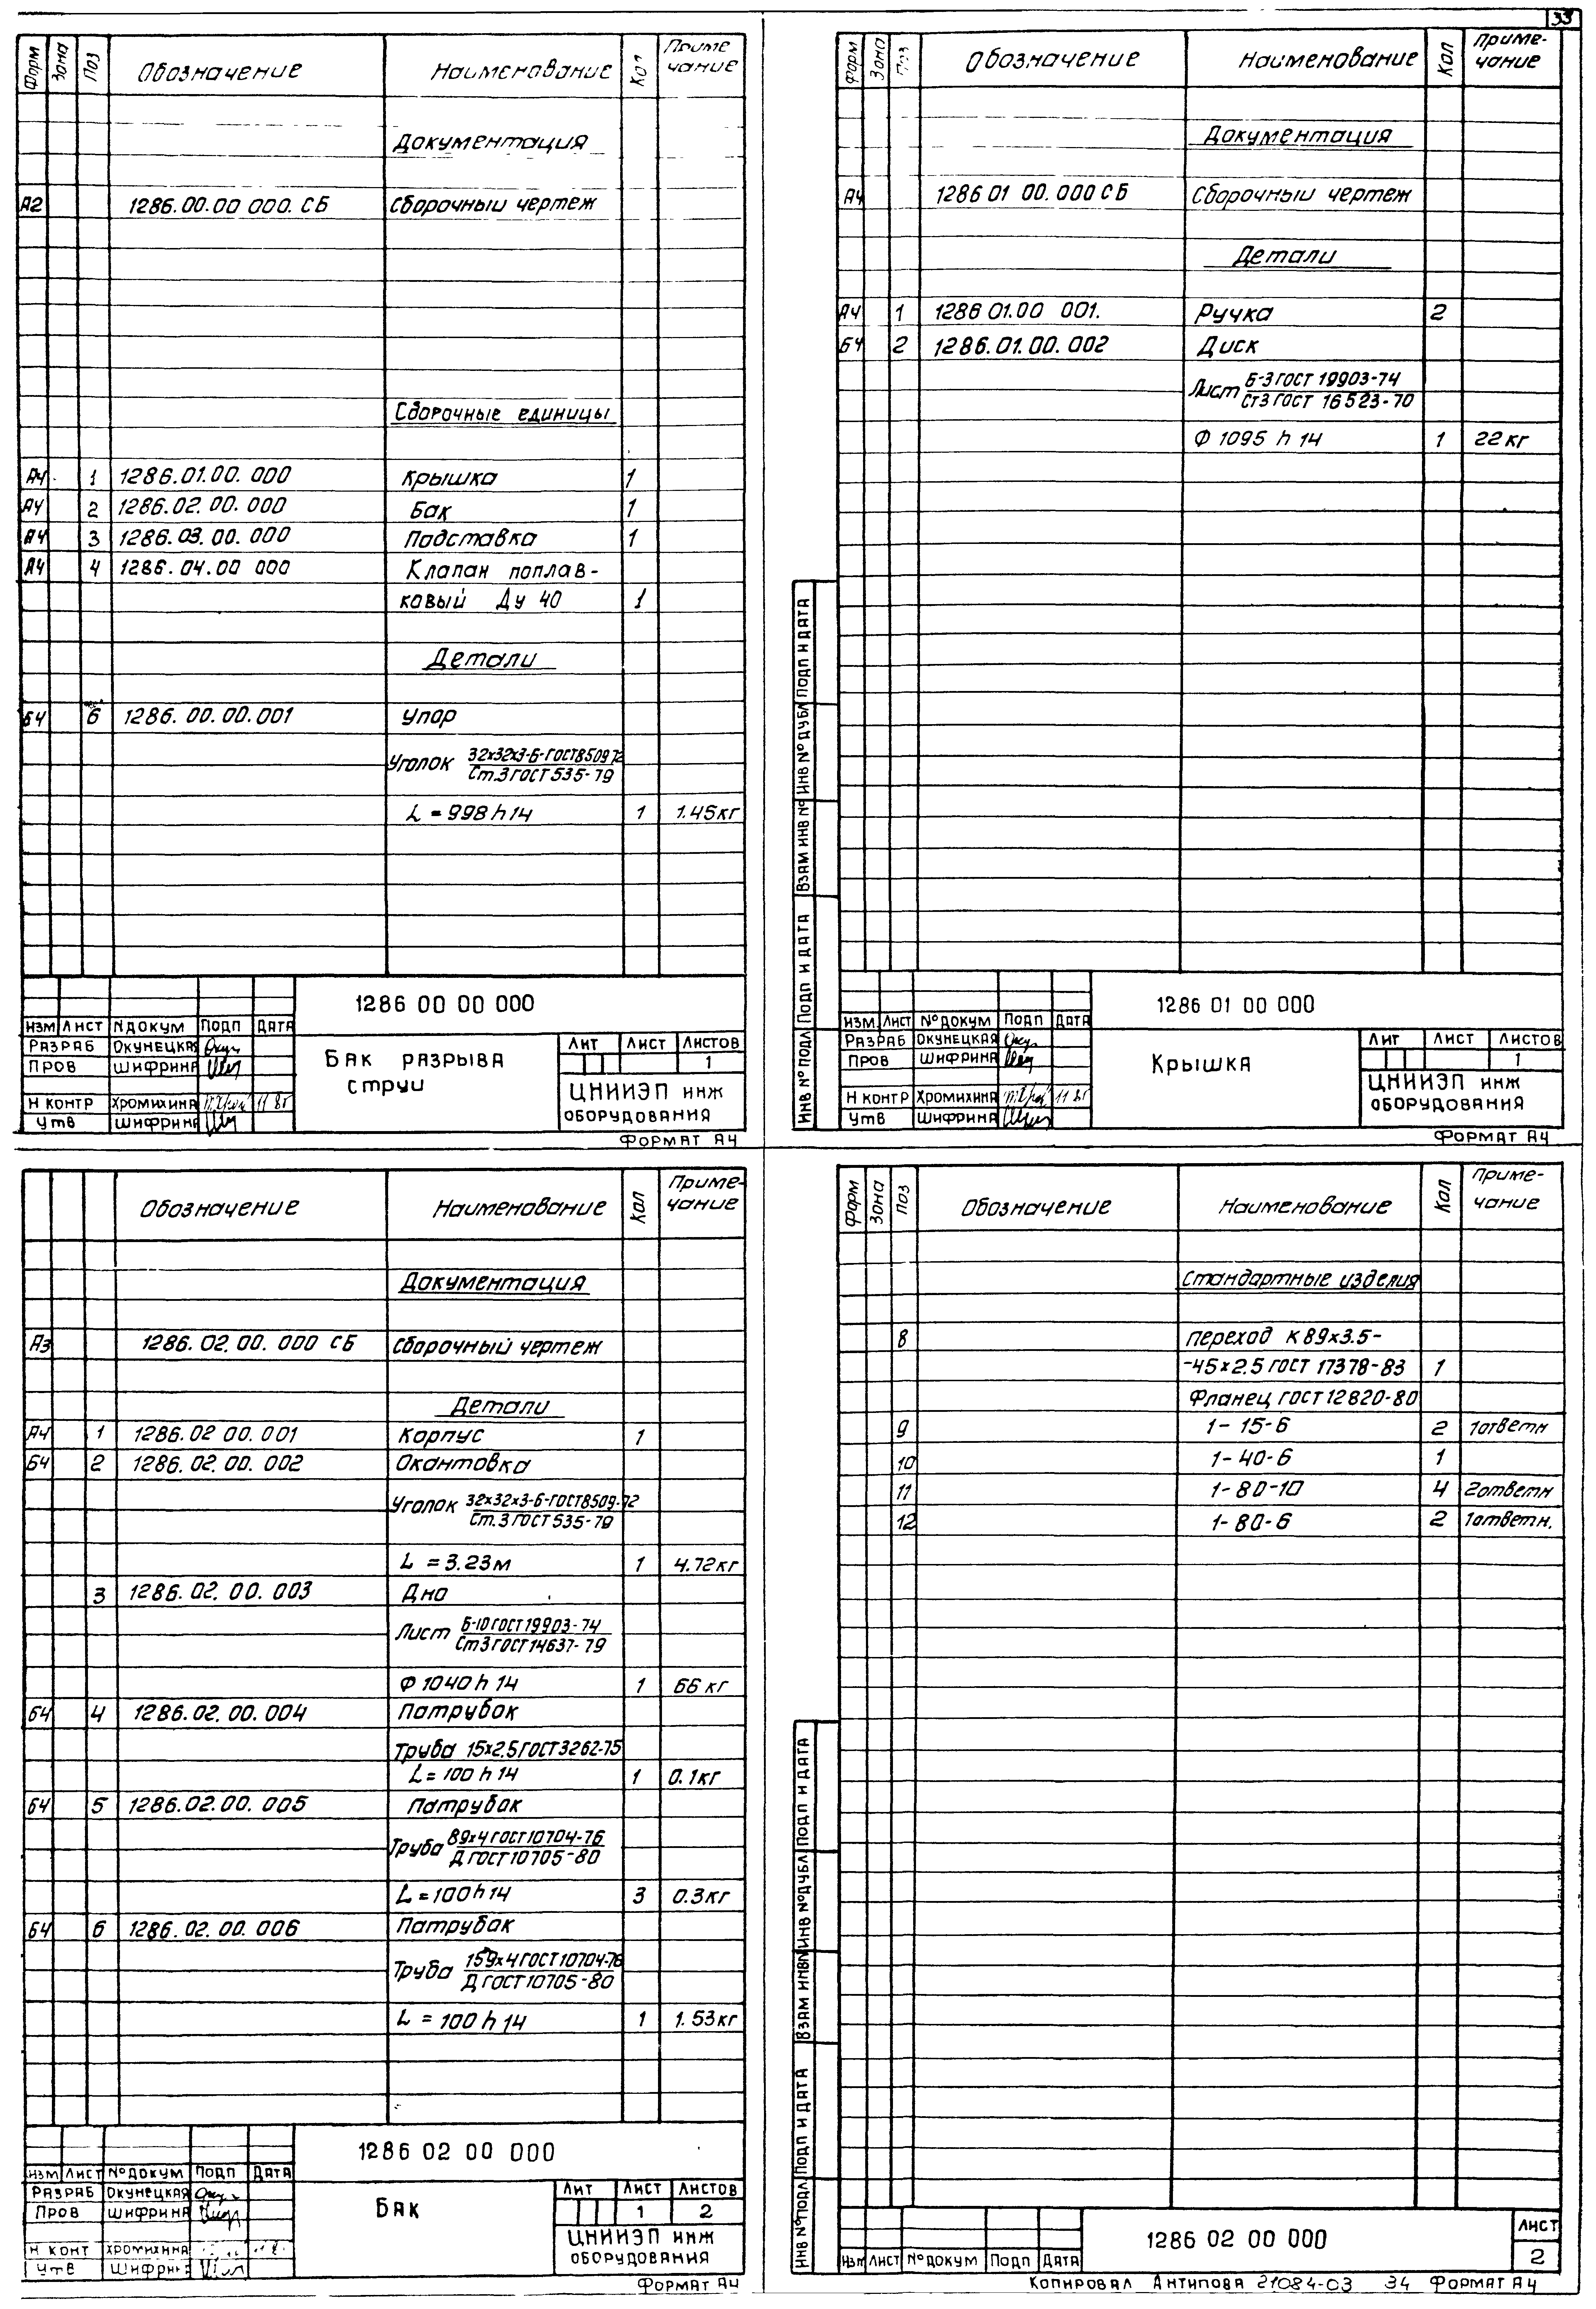 33
Форм Зона Поз Обозначение Наименование Кол Примечание
Документация
А2 1286.00.00 000. СБ Сборочный чертеж
Сборочные единицы
А4 1 1286.01.00. 000 Крышка 1
А4 2 1286.02.00. 000 Бак 1
А4 3 1286.03.00. 000 Подставка 1
А4 4 1286.04.00 000 Клапан поплав-
ковый Ду 40 1
Детали
Б4 6 1286. 00.00.001 Упор
Уголок 32х32х3-Б-ГОСТ8509 72
Ст.3 ГОСТ 535-79
L = 998 h 14 1 1.45кг
1286 00 00 000
Изм Лист № докум Подп Дата
Разраб Окунецкая
Пров Шифрина
Н контр Хромихина 11 85
Утв Шифрина
Бак разрыва
струи
Лит Лист Листов
1
ЦНИИЭП инж
оборудования
Формат А4
Форм Зона Поз Обозначение Наименование Кол Приме-
чание
Документация
А4 1286 01 00. 000 СБ Сборочный чертеж
Детали
А4 1 1286 01.00 001. Ручка 2
Б4 2 1286.01.00.002 Диск
Лист Б-3 ГОСТ 19903-74
Ст3 ГОСТ 16523-70
Ф 1095 h 14 1 22кг
Инв № подл Подп и дата Взам инв № Инв № дубл Подп и дата
1286 01 00 000
Изм. Лист № докум Подп Дата
Разраб Окунецкая
Пров Шифрина
Н контр Хромихина 11 85
Утв Шифрина
Крышка
Лит Лист Листов
1
ЦНИИЭП инж
оборудования
Формат А4
Обозначение Наименование Кол Приме-
чание
Документация
А3 1286. 02. 00. 000 СБ Сборочный чертеж
Детали
А4 1 1286.02 00.001 Корпус 1
Б4 2 1286.02.00.002 Окантовка
Уголок 32х32х3-Б-ГОСТ8509-72
Ст.3 ГОСТ 535-79
L = 3.23м 1 4.72кг
3 1286.02. 00. 003 Дно
Лист Б-10 ГОСТ 19903-74
Ст3 ГОСТ 14637-79
Ф 1040 h 14 1 66 кг
Б4 4 1286.02.00.004 Патрубок
Труба 15х2.5 ГОСТ 3262-75
L= 100 h 14 1 0.1кг
Б4 5 1286.02.00. 005 Патрубок
Труба 89х4 ГОСТ 10704-76
Д ГОСТ 10705-80
L = 100 h 14 3 0.3кг
Б4 6 1286. 02. 00. 006 Патрубок
Труба 159х4 ГОСТ 10704-76
Д ГОСТ 10705-80
L = 100 h 14 1 1.53кг
1286 02 00 000
Изм Лист № докум Подп Дата
Разраб Окунецкая
Пров Шифрина
Н конт Хромихина
Утв Шифрина
Бак
Лит Лист Листов
1 2
ЦНИИЭП инж
оборудования
Формат А4
Форм Зона Поз Обозначение Наименование Кол Приме-
чание
Стандартные изделия
8 Переход К 89х3.5-
-45х2.5 ГОСТ 17378-83 1
Фланец ГОСТ 12820-80
9 1-15-6 2 1ответн
10 1-40-6 1
11 1-80-10 4 2ответн
12 1-80-6 2 1ответн.
Инв № подл Подп и дата Взам инв № Инв № дубл Подп и дата
Изм Лист № докум Подп Дата
1286 02 00 000
Лист
2
Копировал Антипова 21084-03 34 Формат А4